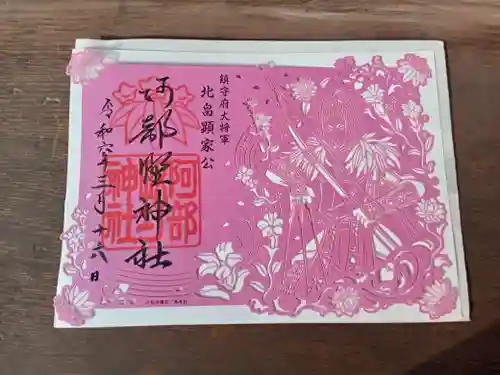 鎮守府大将軍
北畠顕家公
阿部野神社
阿部
神社
令和六年三月十六日